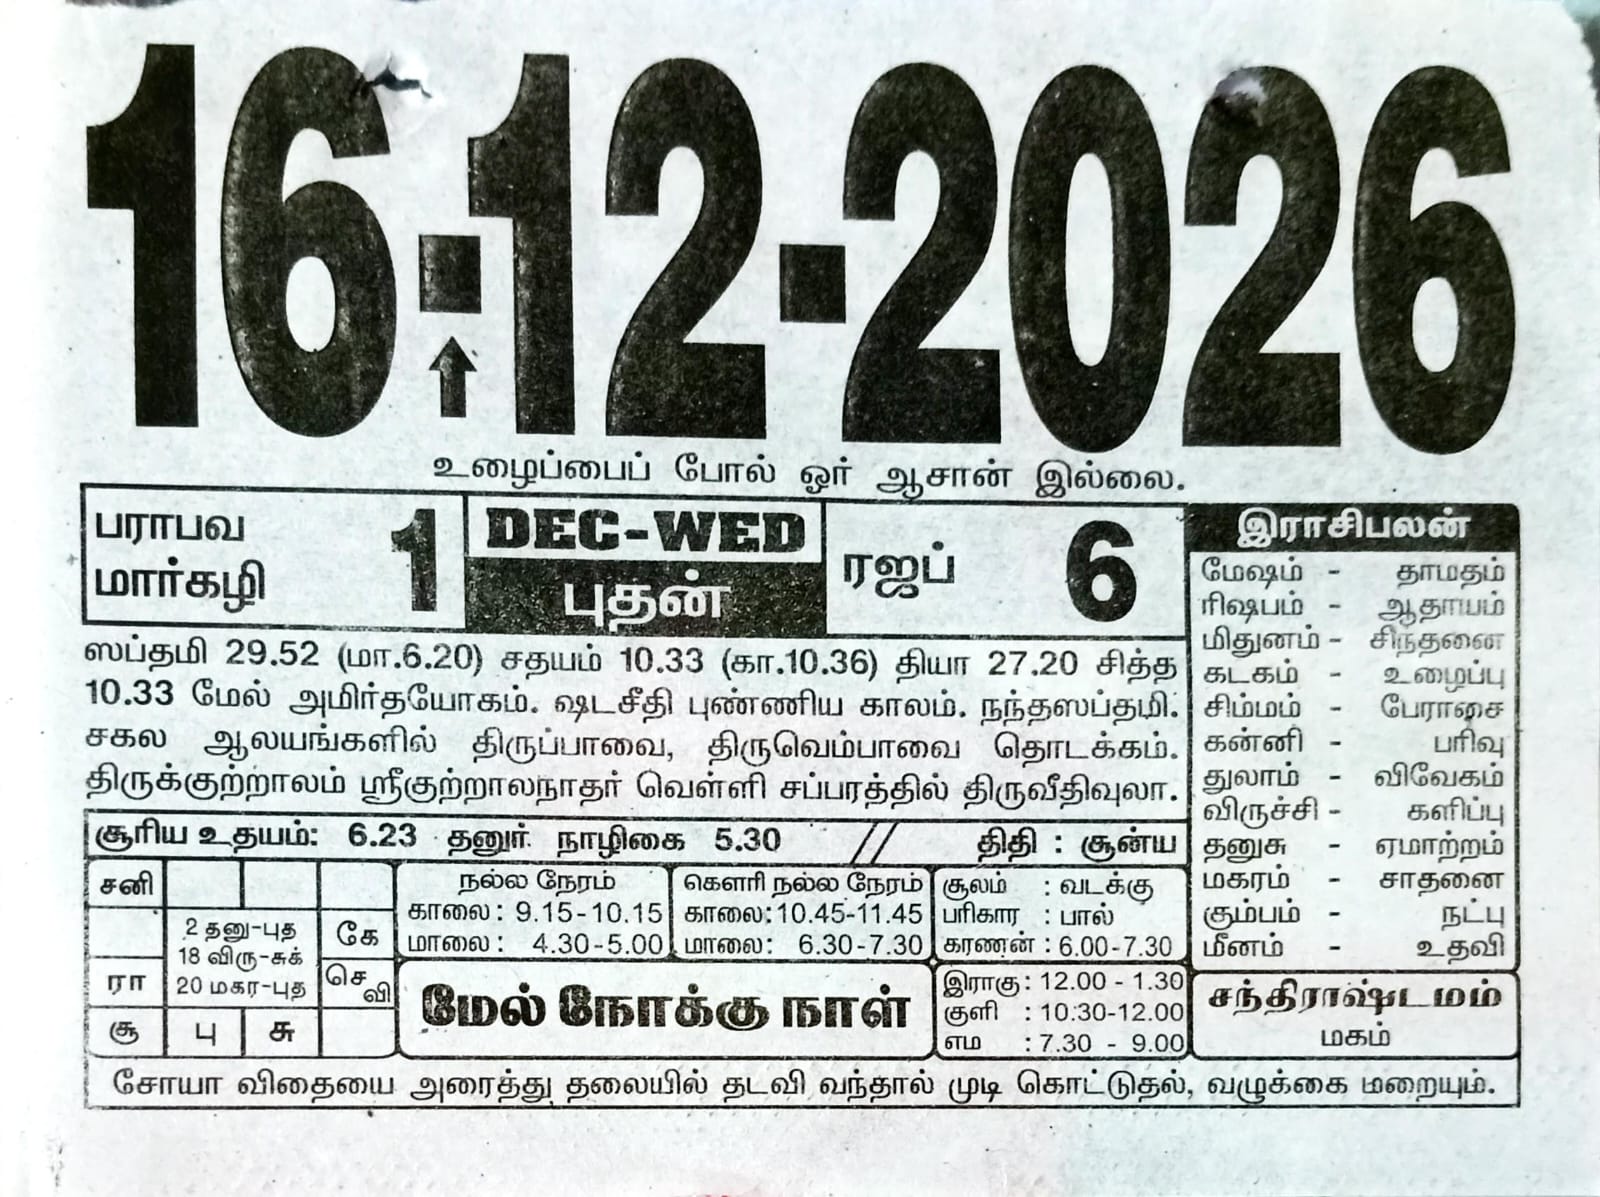 16-12-2026
உழைப்பைப் போல் ஓர் ஆசான் இல்லை.
பராபவ
மார்கழி 1
DEC-WED
புதன்
ரஜப் 6
ஸப்தமி 29.52 (மா.6.20) சதயம் 10.33 (கா.10.36) தியா 27.20 சித்த
10.33 மேல் அமிர்தயோகம். ஷடசீதி புண்ணிய காலம். நந்தஸப்தமி.
சகல ஆலயங்களில் திருப்பாவை, திருவெம்பாவை தொடக்கம்.
திருக்குற்றாலம் ஸ்ரீகுற்றாலநாதர் வெள்ளி சப்பரத்தில் திருவீதிவுலா.
சூரிய உதயம்: 6.23 தனுர் நாழிகை 5.30 // திதி : சூன்ய
சனி
2 தனு-புத
18 விரு-சுக்
20 மகர-புத
கே
ரா
செ
வி
சூ பு சு
நல்ல நேரம்
காலை: 9.15-10.15
மாலை: 4.30-5.00
கௌரி நல்ல நேரம்
காலை: 10.45-11.45
மாலை: 6.30-7.30
சூலம் : வடக்கு
பரிகார : பால்
கரணன் : 6.00-7.30
மேல் நோக்கு நாள்
இராகு: 12.00 - 1.30
குளி : 10.30-12.00
எம : 7.30 - 9.00
இராசிபலன்
மேஷம் - தாமதம்
ரிஷபம் - ஆதாயம்
மிதுனம் - சிந்தனை
கடகம் - உழைப்பு
சிம்மம் - பேராசை
கன்னி - பரிவு
துலாம் - விவேகம்
விருச்சி - களிப்பு
தனுசு - ஏமாற்றம்
மகரம் - சாதனை
கும்பம் - நட்பு
மீனம் - உதவி
சந்திராஷ்டமம்
மகம்
சோயா விதையை அரைத்து தலையில் தடவி வந்தால் முடி கொட்டுதல், வழுக்கை மறையும்.